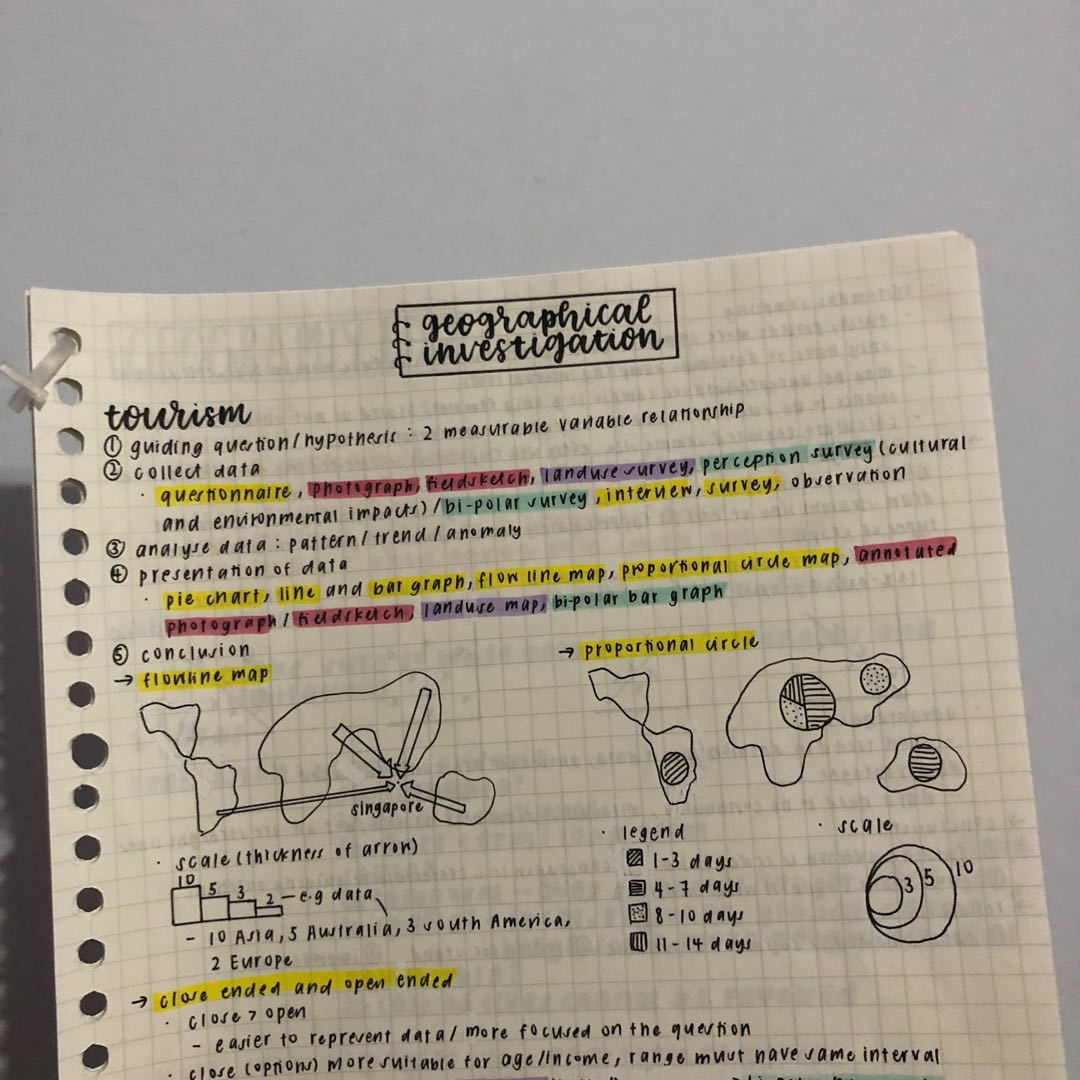 geographical
investigation
tourism
① guiding question/hypothesis : 2 measurable variable relationship
② collect data
· questionnaire, photograph, fieldsketch, landuse survey, perception survey (cultural
and environmental impacts) / bi-polar survey, interview, survey, observation
③ analyse data : pattern/trend/anomaly
④ presentation of data
· pie chart, line and bar graph, flow line map, proportional circle map, annotated
photograph / fieldsketch, landuse map, bi-polar bar graph
⑤ conclusion
→ flowline map
→ proportional circle
singapore
· scale (thickness of arrow)
10 5 3 2 — e.g data
- 10 Asia, 5 Australia, 3 south America,
2 Europe
· legend
1-3 days
4-7 days
8-10 days
11-14 days
· scale
3 5 10
→ close ended and open ended
· close > open
- easier to represent data / more focused on the question
· close (options) more suitable for age/income, range must have same interval